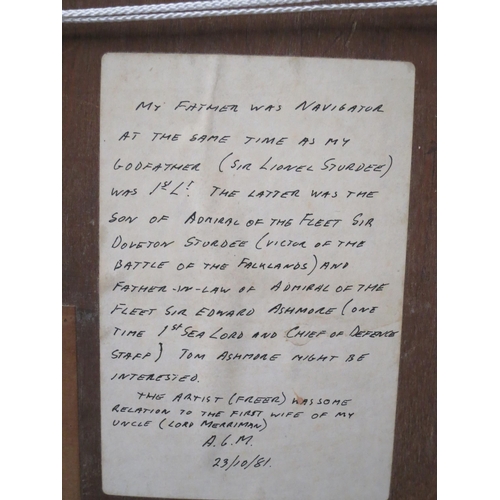 MY FATHER WAS NAVIGATOR
AT THE SAME TIME AS MY
GODFATHER (SIR LIONEL STURDEE)
WAS 1st Lt. THE LATTER WAS THE
SON OF ADMIRAL OF THE FLEET SIR
DOVETON STURDEE (VICTOR OF THE
BATTLE OF THE FALKLANDS) AND
FATHER-IN-LAW OF ADMIRAL OF THE
FLEET SIR EDWARD ASHMORE (ONE
TIME 1st SEA LORD AND CHIEF OF DEFENCE
STAFF) TOM ASHMORE MIGHT BE
INTERESTED.
THE ARTIST (FREER) WAS SOME
RELATION TO THE FIRST WIFE OF MY
UNCLE (LORD MERRIMAN)
A.G.M.
23/10/81.